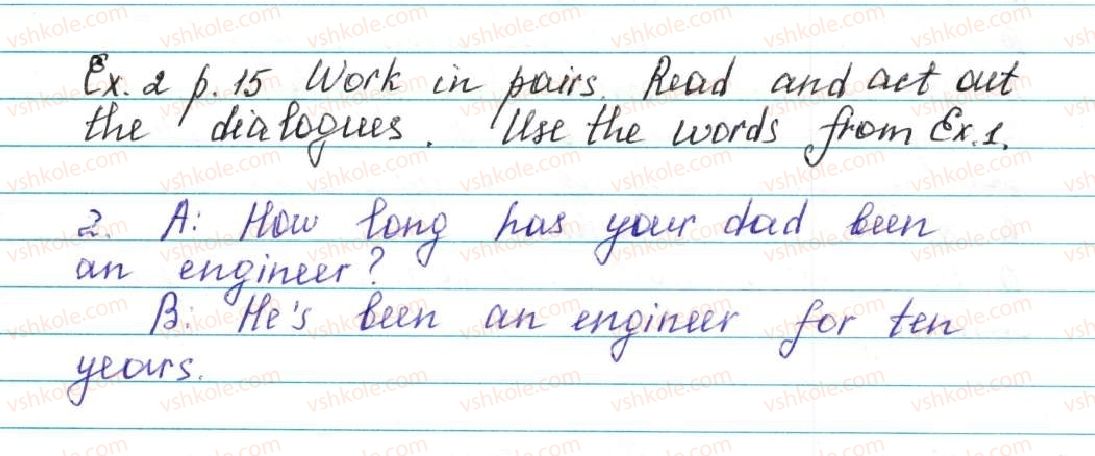 Ex. 2 p. 15 Work in pairs. Read and act out
the dialogues. Use the words from Ex. 1.
2. A: How long has your dad been
an engineer?
B: He's been an engineer for ten
years.